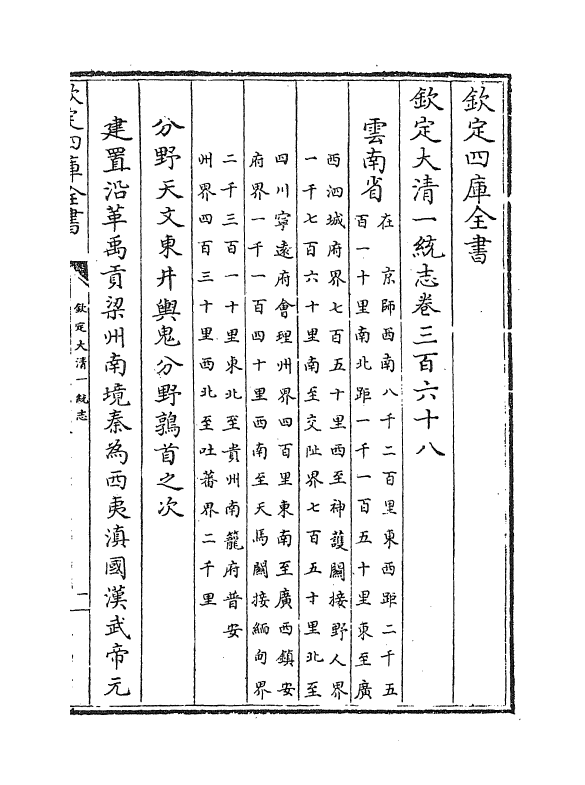 欽定四庫全書
欽定大清一統志卷三百六十八
雲南省
在　京師西南八千二百里東西距二千五
百一十里南北距一千一百五十里東至廣
西泗城府界七百五十里西至神護關接野人界
一千七百六十里南至交阯界七百五十里北至
四川寧遠府會理州界四百里東南至廣西鎮安
府界一千一百四十里西南至天馬關接緬甸界
二千三百一十里東北至貴州南籠府普安
州界四百三十里西北至吐蕃界二千里
分野天文東井輿鬼分野鶉首之次
建置沿革禹貢梁州南境秦為西夷滇國漢武帝元
欽定四庫全書
欽定大清一統志